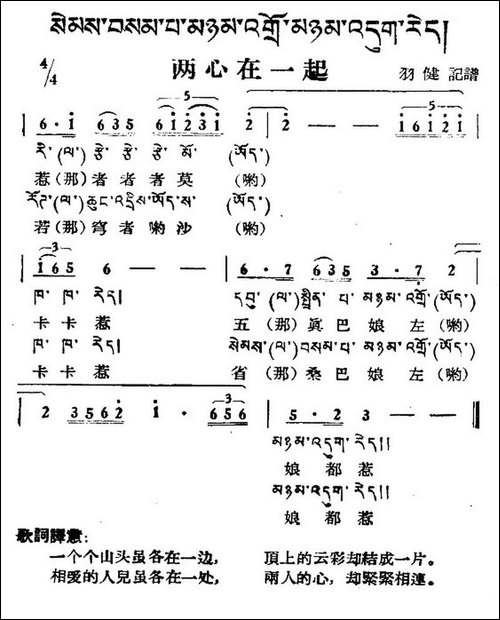 སེམས་བསམ་པ་མཉམ་འགྲོ་མཉམ་འདུག་རེད།
4/4 两心在一起 羽健 記譜
6 · i 6 3 5 6 i 2 3 i 2 2 — — i 6 i 2 i
རི་(ལ་) རྩེ་ རྩེ་ རྩེ་ མོ་ (ཨོད་)
惹(那)者者者莫 (喲)
(ལ་) ཆུང་འདྲིས་ཨོད་ས་ (ཨོད་)
若(那)穹者喲沙 (喲)
i 6 5 6 — — 6 · 7 6 3 5 3 · 7 2
ཁ་ ཁ་ རེད། དབུ་ (ལ་) སྤྲིན་ པ་ མཉམ་འགྲོ་(ཨོད་)
卡卡惹 五(那)眞巴娘左(喲)
ཁ་ ཁ་ རེད། སེམས་(ལ་) བསམ་པ་ མཉམ་འགྲོ་(ཨོད་)
卡卡惹 省(那)桑巴娘左(喲)
2 3 5 6 2 i · 6 5 6 5 · 2 3 — —
མཉམ་འདུག་ རེད།།
娘都惹
མཉམ་འདུག་ རེད།།
娘都惹
歌詞譯意:
一个个山头虽各在一边, 頂上的云彩却結成一片。
相愛的人兒虽各在一处, 兩人的心,却緊緊相連。